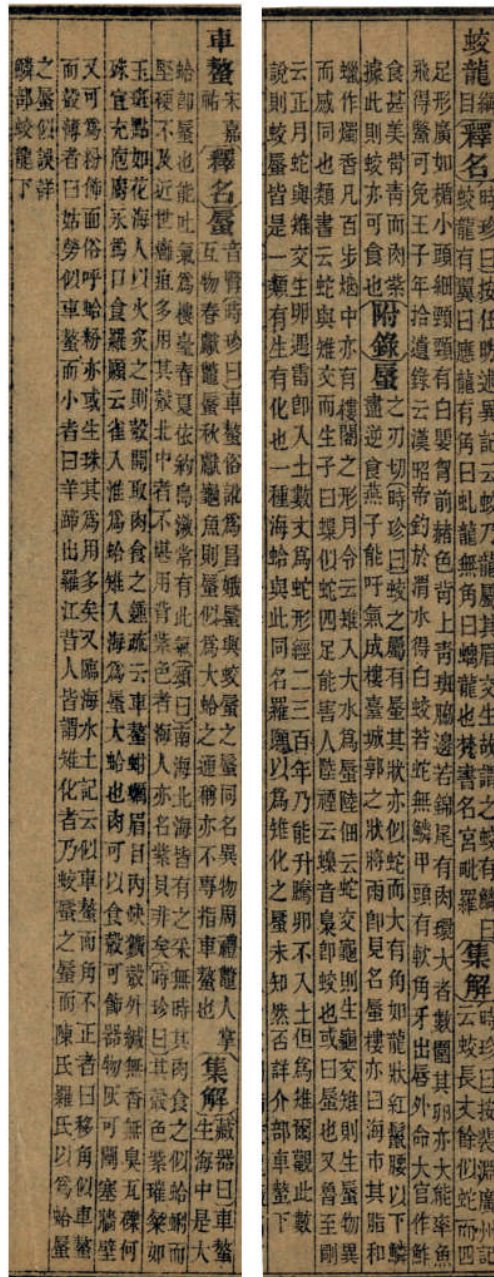 蛟龍綱目釋名時珍曰按任昉述異記云蛟乃龍屬其眉交生故謂之蛟有鱗曰
蛟龍有翼曰應龍有角曰虬龍無角曰螭龍也梵書名宮毗羅
集解時珍曰按裴淵廣州記
云蛟長丈餘似蛇而四
足形廣如楯小頭細頸頸有白嬰胷前赭色背上青斑脇邊若錦尾有肉環大者數圍其卵亦大能率魚
飛得鱉可免王子年拾遺錄云漢昭帝釣於渭水得白蛟若蛇無鱗甲頭有軟角牙出唇外命大官作鮓
食甚美骨青而肉紫
據此則蛟亦可食也
附錄蜃之刃切時珍曰蛟之屬有蜃其狀亦似蛇而大有角如龍狀紅鬣腰以下鱗
盡逆食燕子能吁氣成樓臺城郭之狀將雨卽見名蜃樓亦曰海市其脂和
蠟作燭香凡百步烟中亦有樓閣之形月令云雉入大水爲蜃陸佃云蛇交龜則生龜交雉則生蜃物異
而感同也類書云蛇與雉交而生子曰蟂似蛇四足能害人陸禋云蟂音梟卽蛟也或曰蜃也又魯至剛
云正月蛇與雉交生卵遇雷卽入土數丈爲蛇形經二三百年乃能升騰卵不入土但爲雉爾觀此數
說則蛟蜃皆是一類有生有化也一種海蛤與此同名羅願以爲雉化之蜃未知然否詳介部車螯下
車螯宋嘉祐釋名蜃音腎時珍曰車螯俗訛爲昌娥蜃與蛟蜃之蜃同名異物周禮鼈人掌
互物春獻鼈蜃秋獻龜魚則蜃似爲大蛤之通稱亦不專指車螯也
集解藏器曰車螯
生海中是大
蛤卽蜃也能吐氣爲樓臺春夏依約島溆常有此氣頌曰南海北海皆有之采無時其肉食之似蛤蜊而
堅硬不及近世癰疽多用其殼北中者不堪用背紫色者海人亦名紫貝非矣時珍曰其殼色紫璀粲如
玉斑點如花海人以火炙之則殼開取肉食之鍾岏云車螯蚶蠣眉目內缺獷殼外緘無香無臭瓦礫何
珠宜充庖廚永爲口食羅願云雀入淮爲蛤雉入海爲蜃大蛤也肉可以食殼可飾器物灰可闉塞牆壁
又可爲粉飾面俗呼蛤粉亦或生珠其爲用多矣又臨海水土記云似車螯而角不正者曰移角似車螯
而殼薄者曰姑勞似車螯而小者曰羊蹄出羅江昔人皆謂雉化者乃蛟蜃之蜃而陳氏羅氏以爲蛤蜃
之蜃似誤詳
鱗部蛟龍下